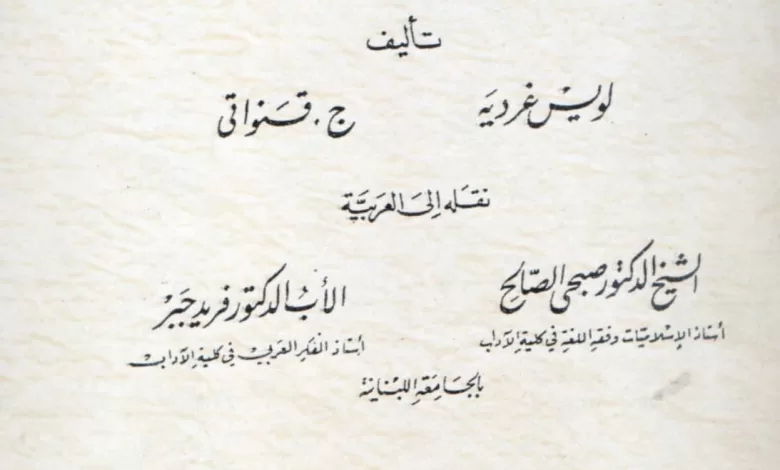 تأليف
لويس غرديه ج. قنواتي
نقله إلى العربية
الشيخ الدكتور صبحي الصالح الأب الدكتور فريد جبر
أستاذ الإسلاميات وفقه اللغة في كلية الآداب أستاذ الفكر العربي في كلية الآداب
بالجامعة اللبنانية